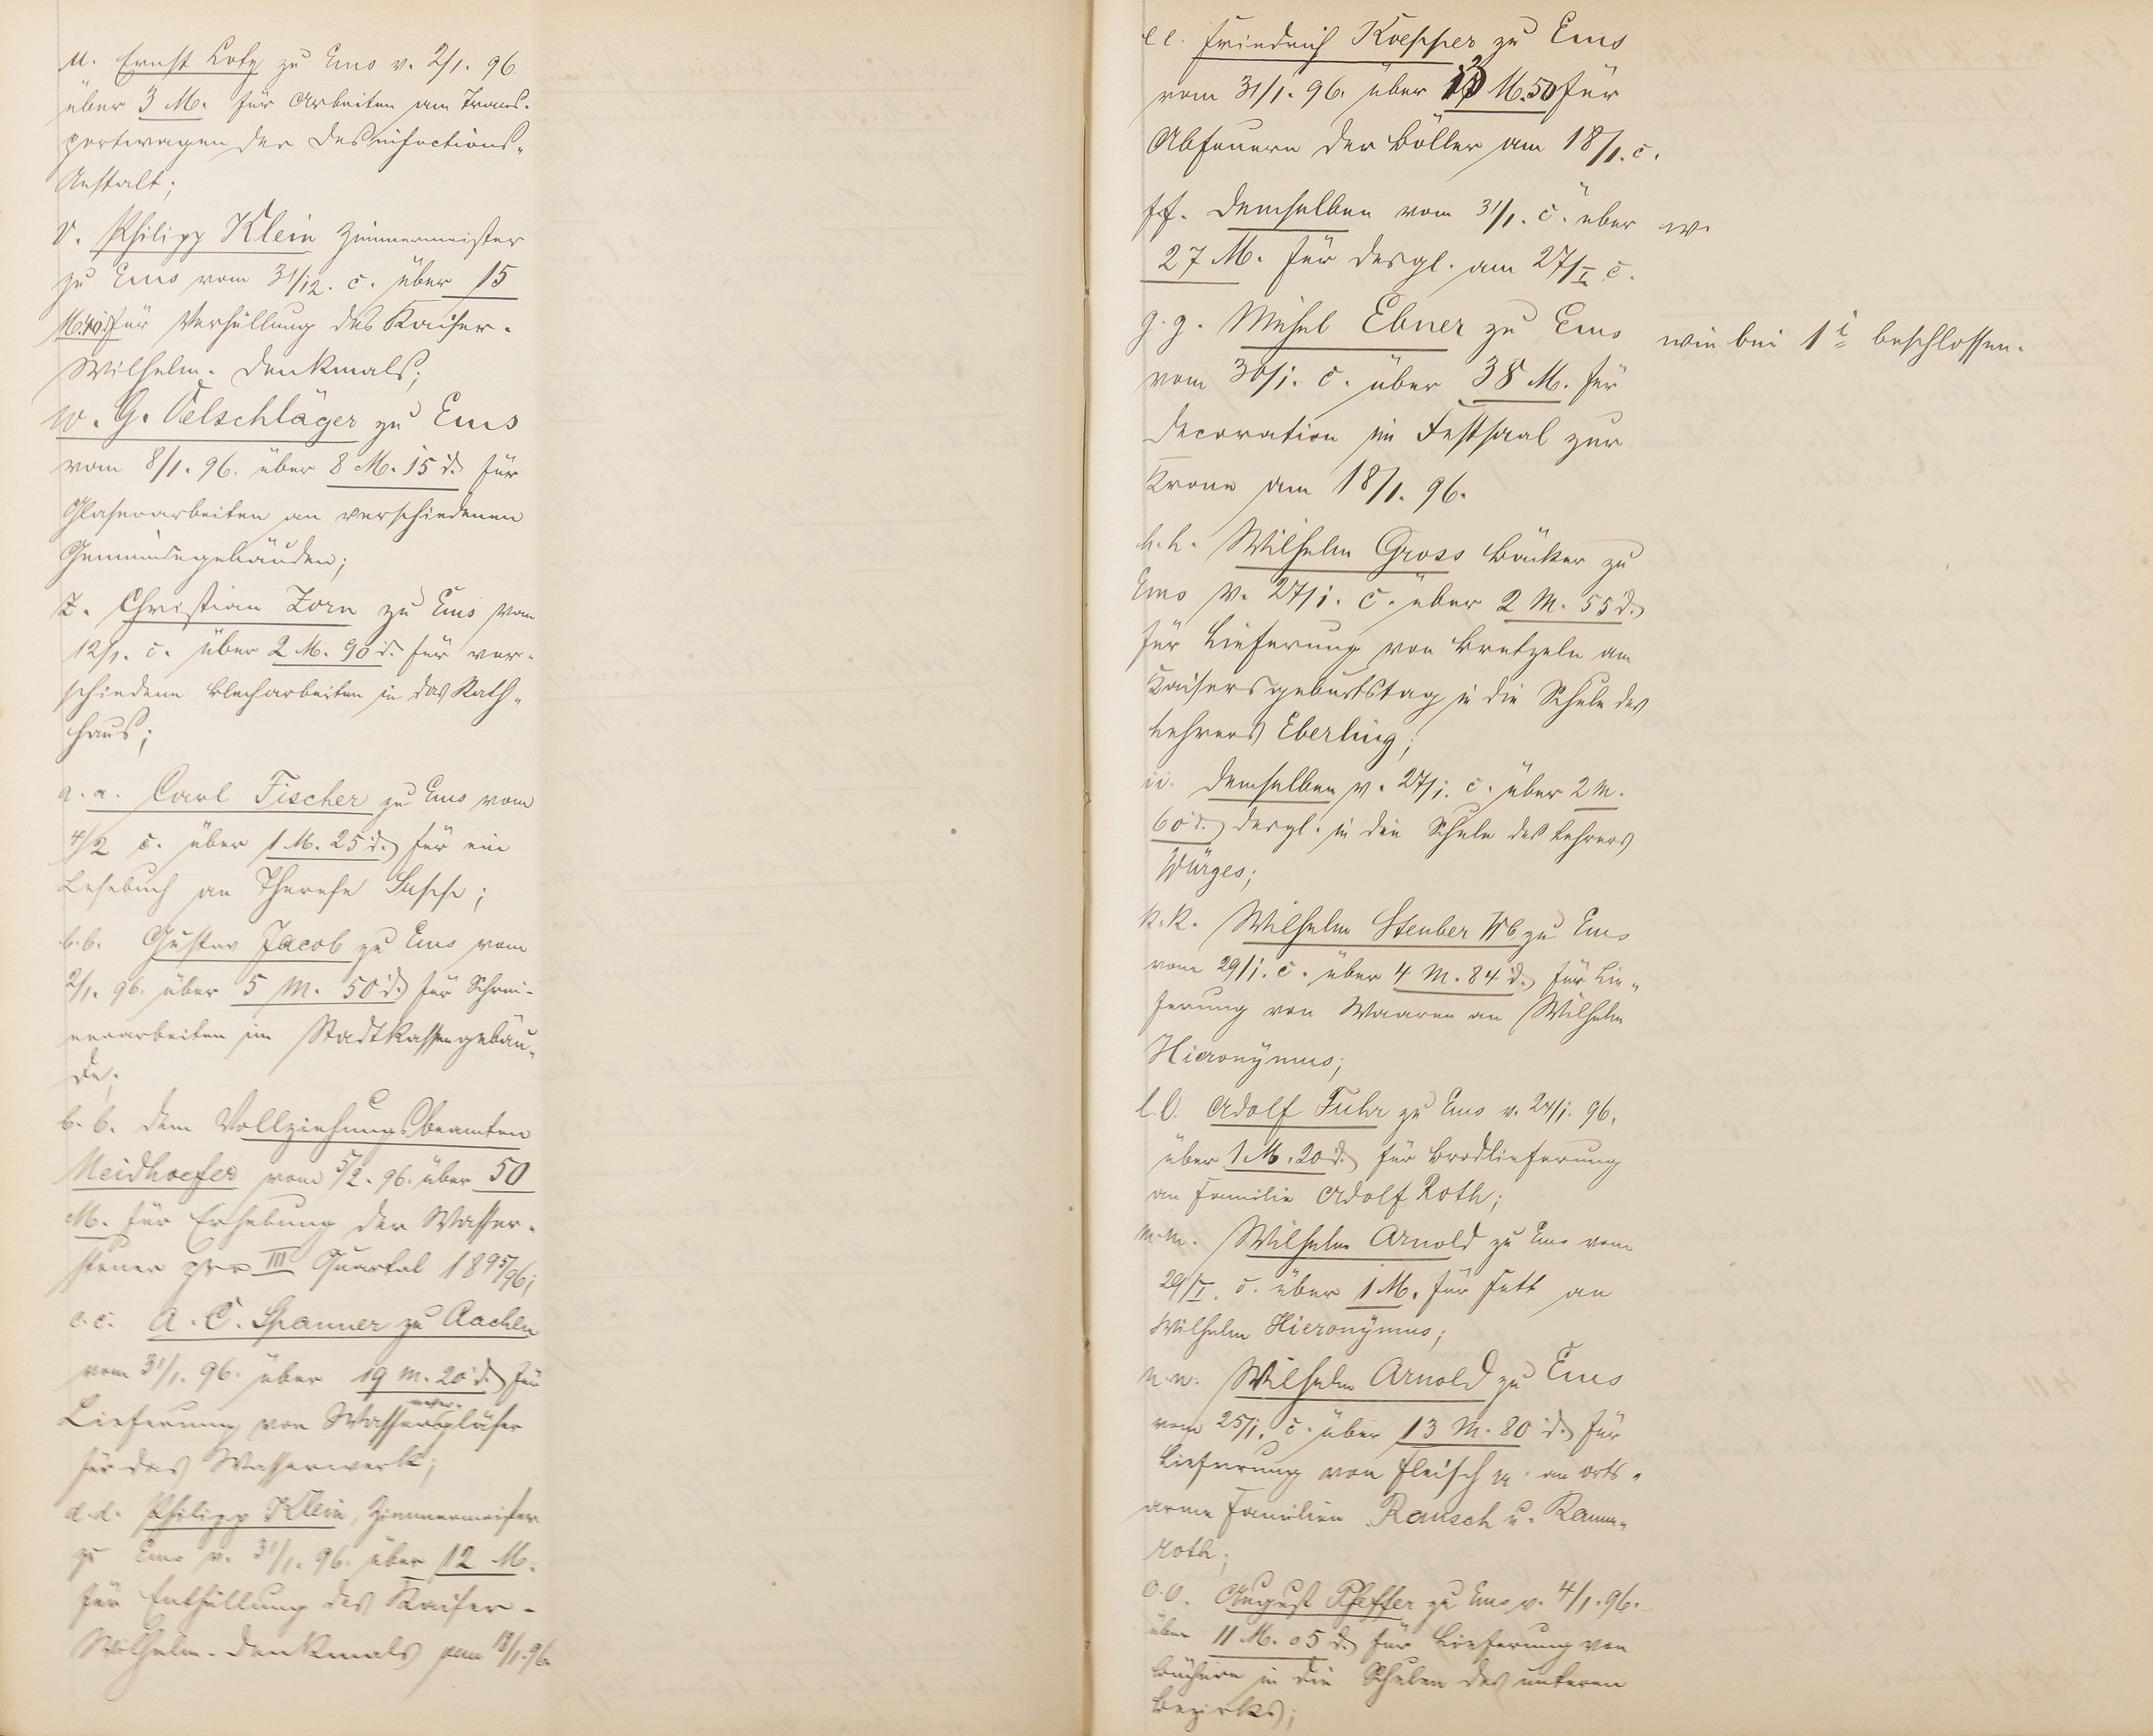 u. Ernst Lotz zu Ems v. 2/1. 96
über 3 M. für Arbeiten am Trans-
portwagen der Desinfections-
Anstalt;
v. Philipp Klein Zimmermeister
zu Ems vom 31/12. c. über 15
M. 40 d. für Verhüllung des Kaiser-
Wilhelm-Denkmals;
w. G. Oelschläger zu Ems
vom 8/1. 96. über 8 M. 15 d. für
Glaserarbeiten an verschiedenen
Gemeindegebäuden;
z. Christian Zorn zu Ems vom
12/1. c. über 2 M. 90 d. für ver-
schiedene Blecharbeiten in das Rath-
haus;
a.a. Carl Fischer zu Ems vom
4/2 c. über 1 M. 25 d. für ein
Lesebuch an Therese
b.b. Gustav Jacob zu Ems vom
2/1. 96. über 5 M. 50 d. für Schrei-
nerarbeiten im Stadtkassengebäu-
de;
b.b. dem Vollziehungsbeamten
Meidhoefer vom 5/2. 96. über 50
M. für Erhebung der Wasser-
steuer pro III Quartal 1895/96;
c.c. A. C. Spanner zu Aachen
vom 31/1. 96. über 19 M. 20 d. für
Lieferung von Wassermessergläser
für das Wasserwerk;
d.d. Philipp Klein, Zimmermeister
zu Ems v. 31/1. 96. über 12 M.
für Enthüllung des Kaiser-
Wilhelm-Denkmals am 18/1. 96.
ee. Friedrich Koepper zu Ems
vom 31/1. 96. über M. 50 für
Abfeuern der Böller am 18/1. c.
ff. Demselben vom 31/1. c. über w.
27 M. für desgl. am 27/I c.
g.g. Michel Ebner zu Ems wie bei 1 i beschlossen.
vom 30/1. c. über 38 M. für
Decoration im Festsaal zur
Krone am 18/1. 96.
h.h. Wilhelm Gross Bäcker zu
Ems v. 27/1. c. über 2 M. 55 d.
für Lieferung von Bretzeln am
Kaisersgeburtstag in die Schule des
Lehrers Eberling;
ii. Demselben v. 27/1. c. über 2 M.
60 d. desgl. in die Schule des Lehrers
Würges;
k.k. Wilhelm Steuber Wb zu Ems
vom 29/1. c. über 4 M. 84 d. für Lie-
ferung von Waaren an Wilhelm
Hieronymus;
l.l. Adolf Fuhr zu Ems v. 24/1. 96.
über 1 M. 20 d. für Brodlieferung
an Familie Adolf Roth;
m.m. Wilhelm Arnold zu Ems vom
29/I. c. über 1 M. für Fett an
Wilhelm Hieronymus;
n.n. Wilhelm Arnold zu Ems
vom 25/1. c. über 13 M. 80 d. für
Lieferung von Fleisch an orts-
arme Familien Rausch u. Ramm-
roth;
o.o. August Pfeffer zu Ems v. 4/1. 96.
über 11 M. 05 d. für Lieferung von
Büchern in die Schulen des unteren
Bezirks;